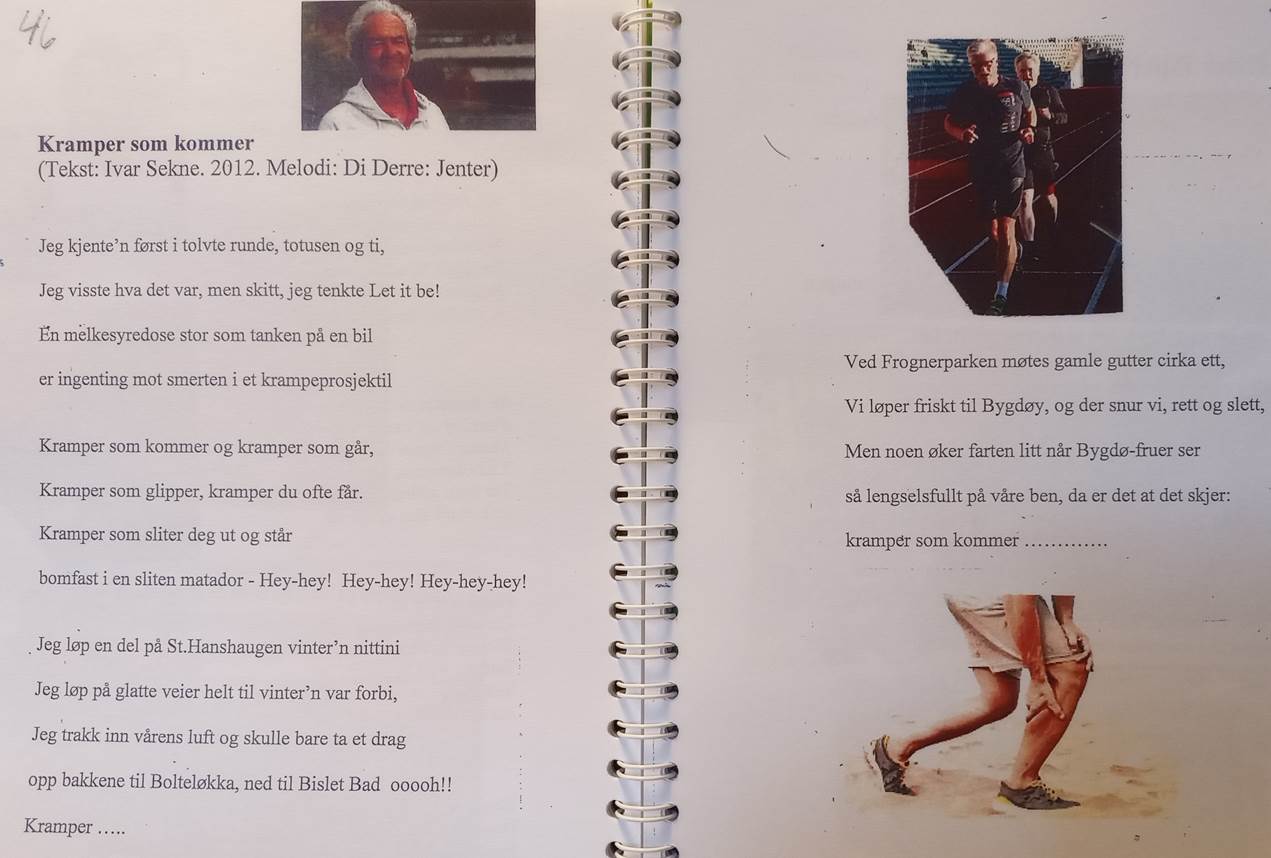 46
Kramper som kommer
(Tekst: Ivar Sekne. 2012. Melodi: Di Derre: Jenter)
Jeg kjente’n først i tolvte runde, totusen og ti,
Jeg visste hva det var, men skitt, jeg tenkte Let it be!
En melkesyredose stor som tanken på en bil
er ingenting mot smerten i et krampeprosjektil
Kramper som kommer og kramper som går,
Kramper som glipper, kramper du ofte får.
Kramper som sliter deg ut og står
bomfast i en sliten matador - Hey-hey! Hey-hey! Hey-hey-hey!
Jeg løp en del på St.Hanshaugen vinter’n nittini
Jeg løp på glatte veier helt til vinter’n var forbi,
Jeg trakk inn vårens luft og skulle bare ta et drag
opp bakkene til Bolteløkka, ned til Bislet Bad ooooh!!
Kramper …..
Ved Frognerparken møtes gamle gutter cirka ett,
Vi løper friskt til Bygdøy, og der snur vi, rett og slett,
Men noen øker farten litt når Bygdø-fruer ser
så lengselsfullt på våre ben, da er det at det skjer:
kramper som kommer ………….